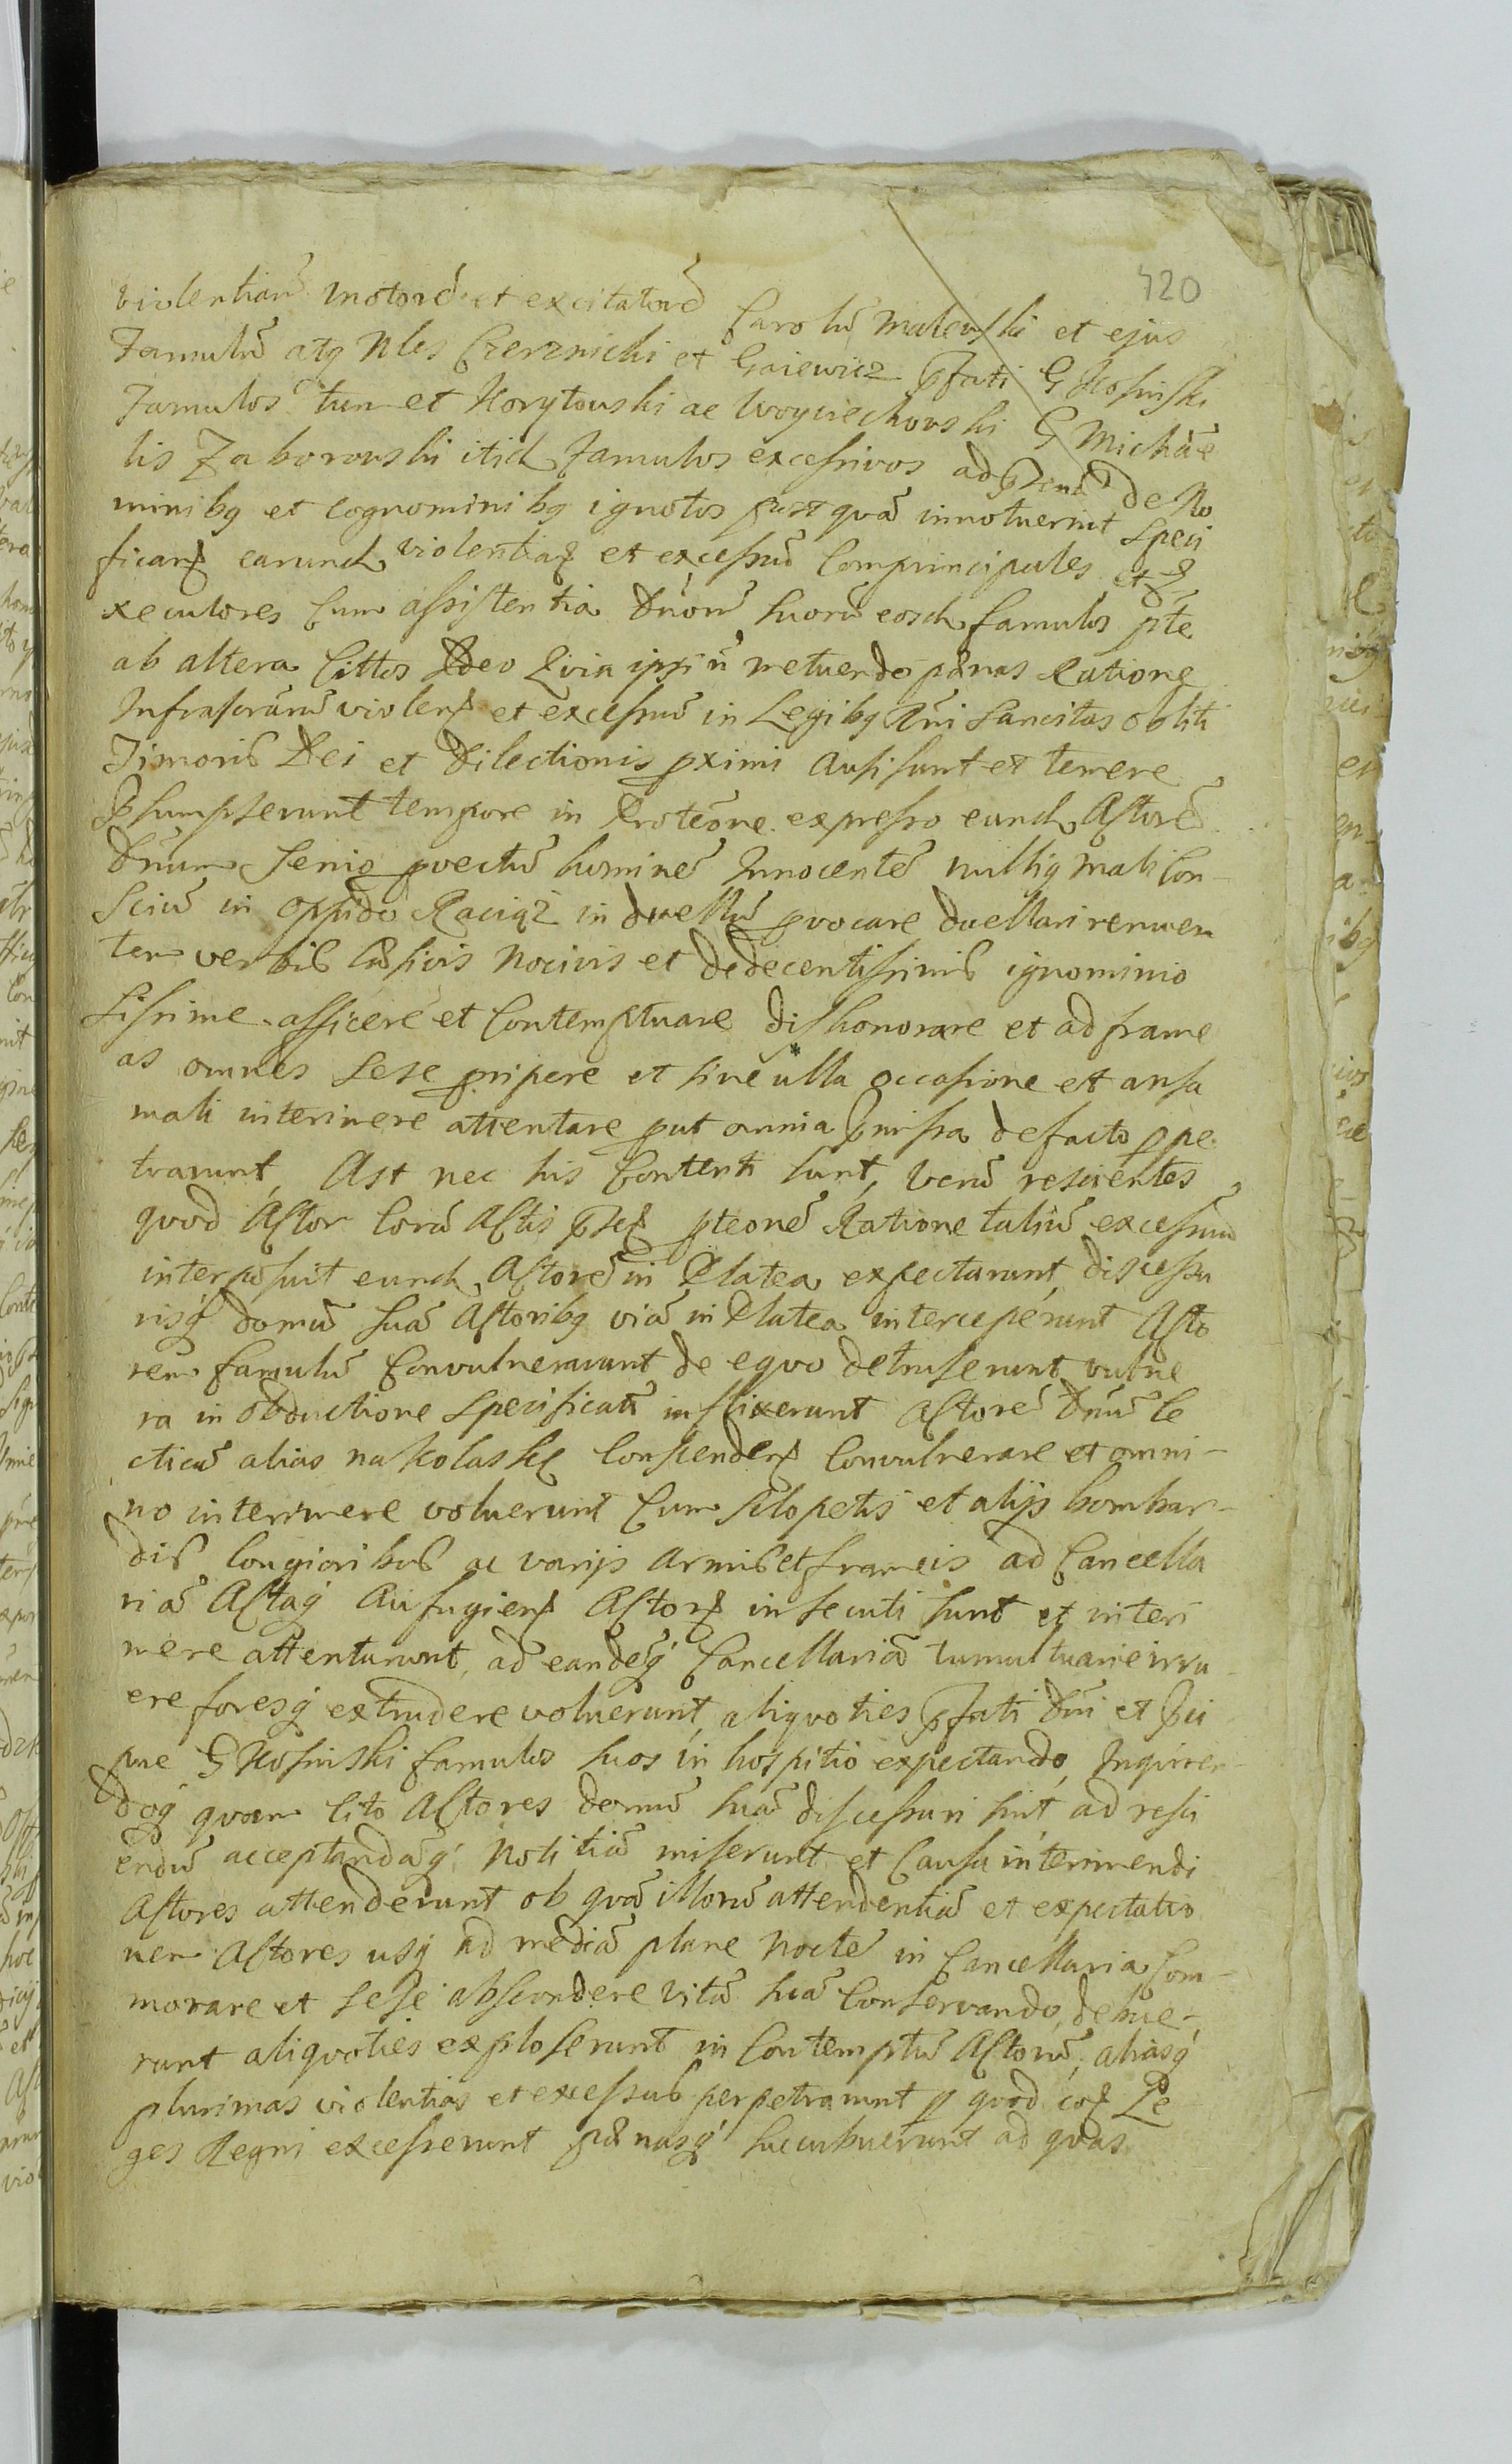 420
violentiarũ motorẽ et excitatorẽ Carolũ Malewski et ejus
Famulũ atq Nles Czerznicki et Gaiewicz pfati G Kosinski
Famulos tum et Korytowski ac Woyciechowski G Michae
lis Zaborowski itid famulos excessivos ad de No
minibq et cognominibq ignotos postquã innotuerint speci
ficand earund violentiaȓ et excessuũ Comprincipales et E
xecutores Cum assistentia Dnorũ suorũ eosd famulos pte
ab altera Cittos Adeo Quia ipsi ñ metuendo pænas Ratione
Infrascrãrũ violenȓ et excessuũ in Legibq Rñi Sancitas obliti
Timoris Dei et Dilectionis pximi ausi sunt et temere
Psumpserunt tempore in Proteõne expresso eund Actorẽ
Dnum Senio pvectũ hominẽ Innocentẽ nulliq mali Con-
sciũ in oppido Raciąz in duellũ pvocare duellari renuen
tem verbis læsivis nocivis et dedecentissimis ignominio
sissime afficere et Contemptuare dishonorare et ad frame
as omnes sese pripere et sine ulla occasione et ansa
mali interimere attentare put omnia pmissa de facto ppe
trarunt, Ast nec his Contenti sunt, verũ rescientes
quod Actor Corã Actis pteonẽ Ratione taliũ excessuũ
interposuit eund Actorẽ in Platea expectarunt, discessu
risq domũ suã Actoribq viã in Platea intercepérunt Acto
rem famulũ Convulnerarunt de equo detruserunt, vulne
ra in obductione specificata inflixerunt Actorẽ Dnũ le
cticã alias na kolaskę Conscendenȓ Convulnerare et omni-
no interimere voluerunt Cum sclopetis et alijs bombar-
dis longioribus ac varijs armis et frameis ad Cancella
riã Actaq Aufugienȓ Actorȓ insecuti sunt et interi
mere attentarunt, ad eandeq Cancellariã tumultuarie irru-
ere foresq extrudere voluerunt, aliquoties pfati Dni et pci
pue G Kosinski famulos suos in hospitio expectando, Inquiren-
doq quam cito Actores domũ suã discessuri sint, ad resci
endũ acceptandãq notitiã miserunt et Causa interimendi
Actores attenderunt ob quã illorũ attendentiã et expectatio
nem Actores usq ad mediã plane noctẽ in Cancellaria Com-
morare et sese abscondere vitã suã Conservando, debue-
runt aliquoties exploserunt in Contemptũ Actorũ, aliasq
plurimas violentias et excessus perpetrarunt p quod coẽs Le
ges Regni excesserunt pænasq succubuerunt ad quas